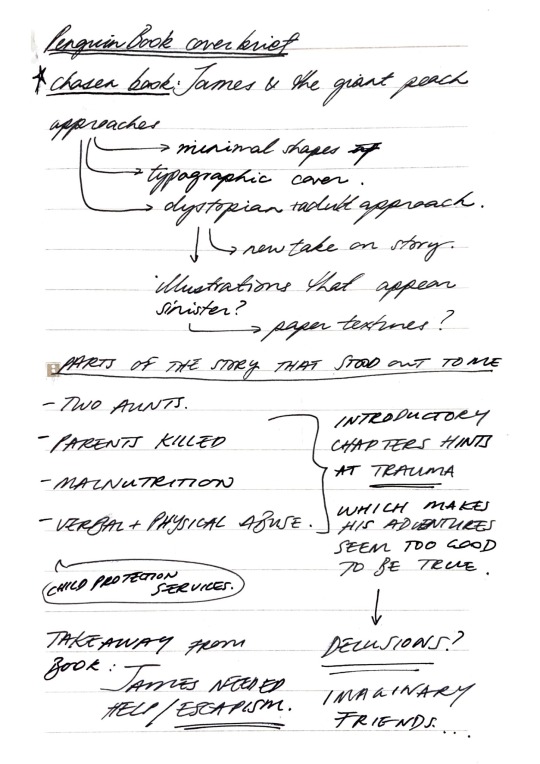 Penguin Book cover brief
* chosen book: James & the giant peach
approaches
→ minimal shapes
→ typographic cover.
→ dystopian + adult approach.
→ new take on story.
illustrations that appear
sinister?
→ paper textures?
PARTS OF THE STORY THAT STOOD OUT TO ME
- TWO AUNTS.
- PARENTS KILLED
- MALNUTRITION
- VERBAL + PHYSICAL ABUSE.
INTRODUCTORY
CHAPTERS HINTS
AT TRAUMA
WHICH MAKES
HIS ADVENTURES
SEEM TOO GOOD
TO BE TRUE.
CHILD PROTECTION
SERVICES.
TAKEAWAY FROM
BOOK:
JAMES NEEDED
HELP/ESCAPISM.
DELUSIONS?
IMAGINARY
FRIENDS...